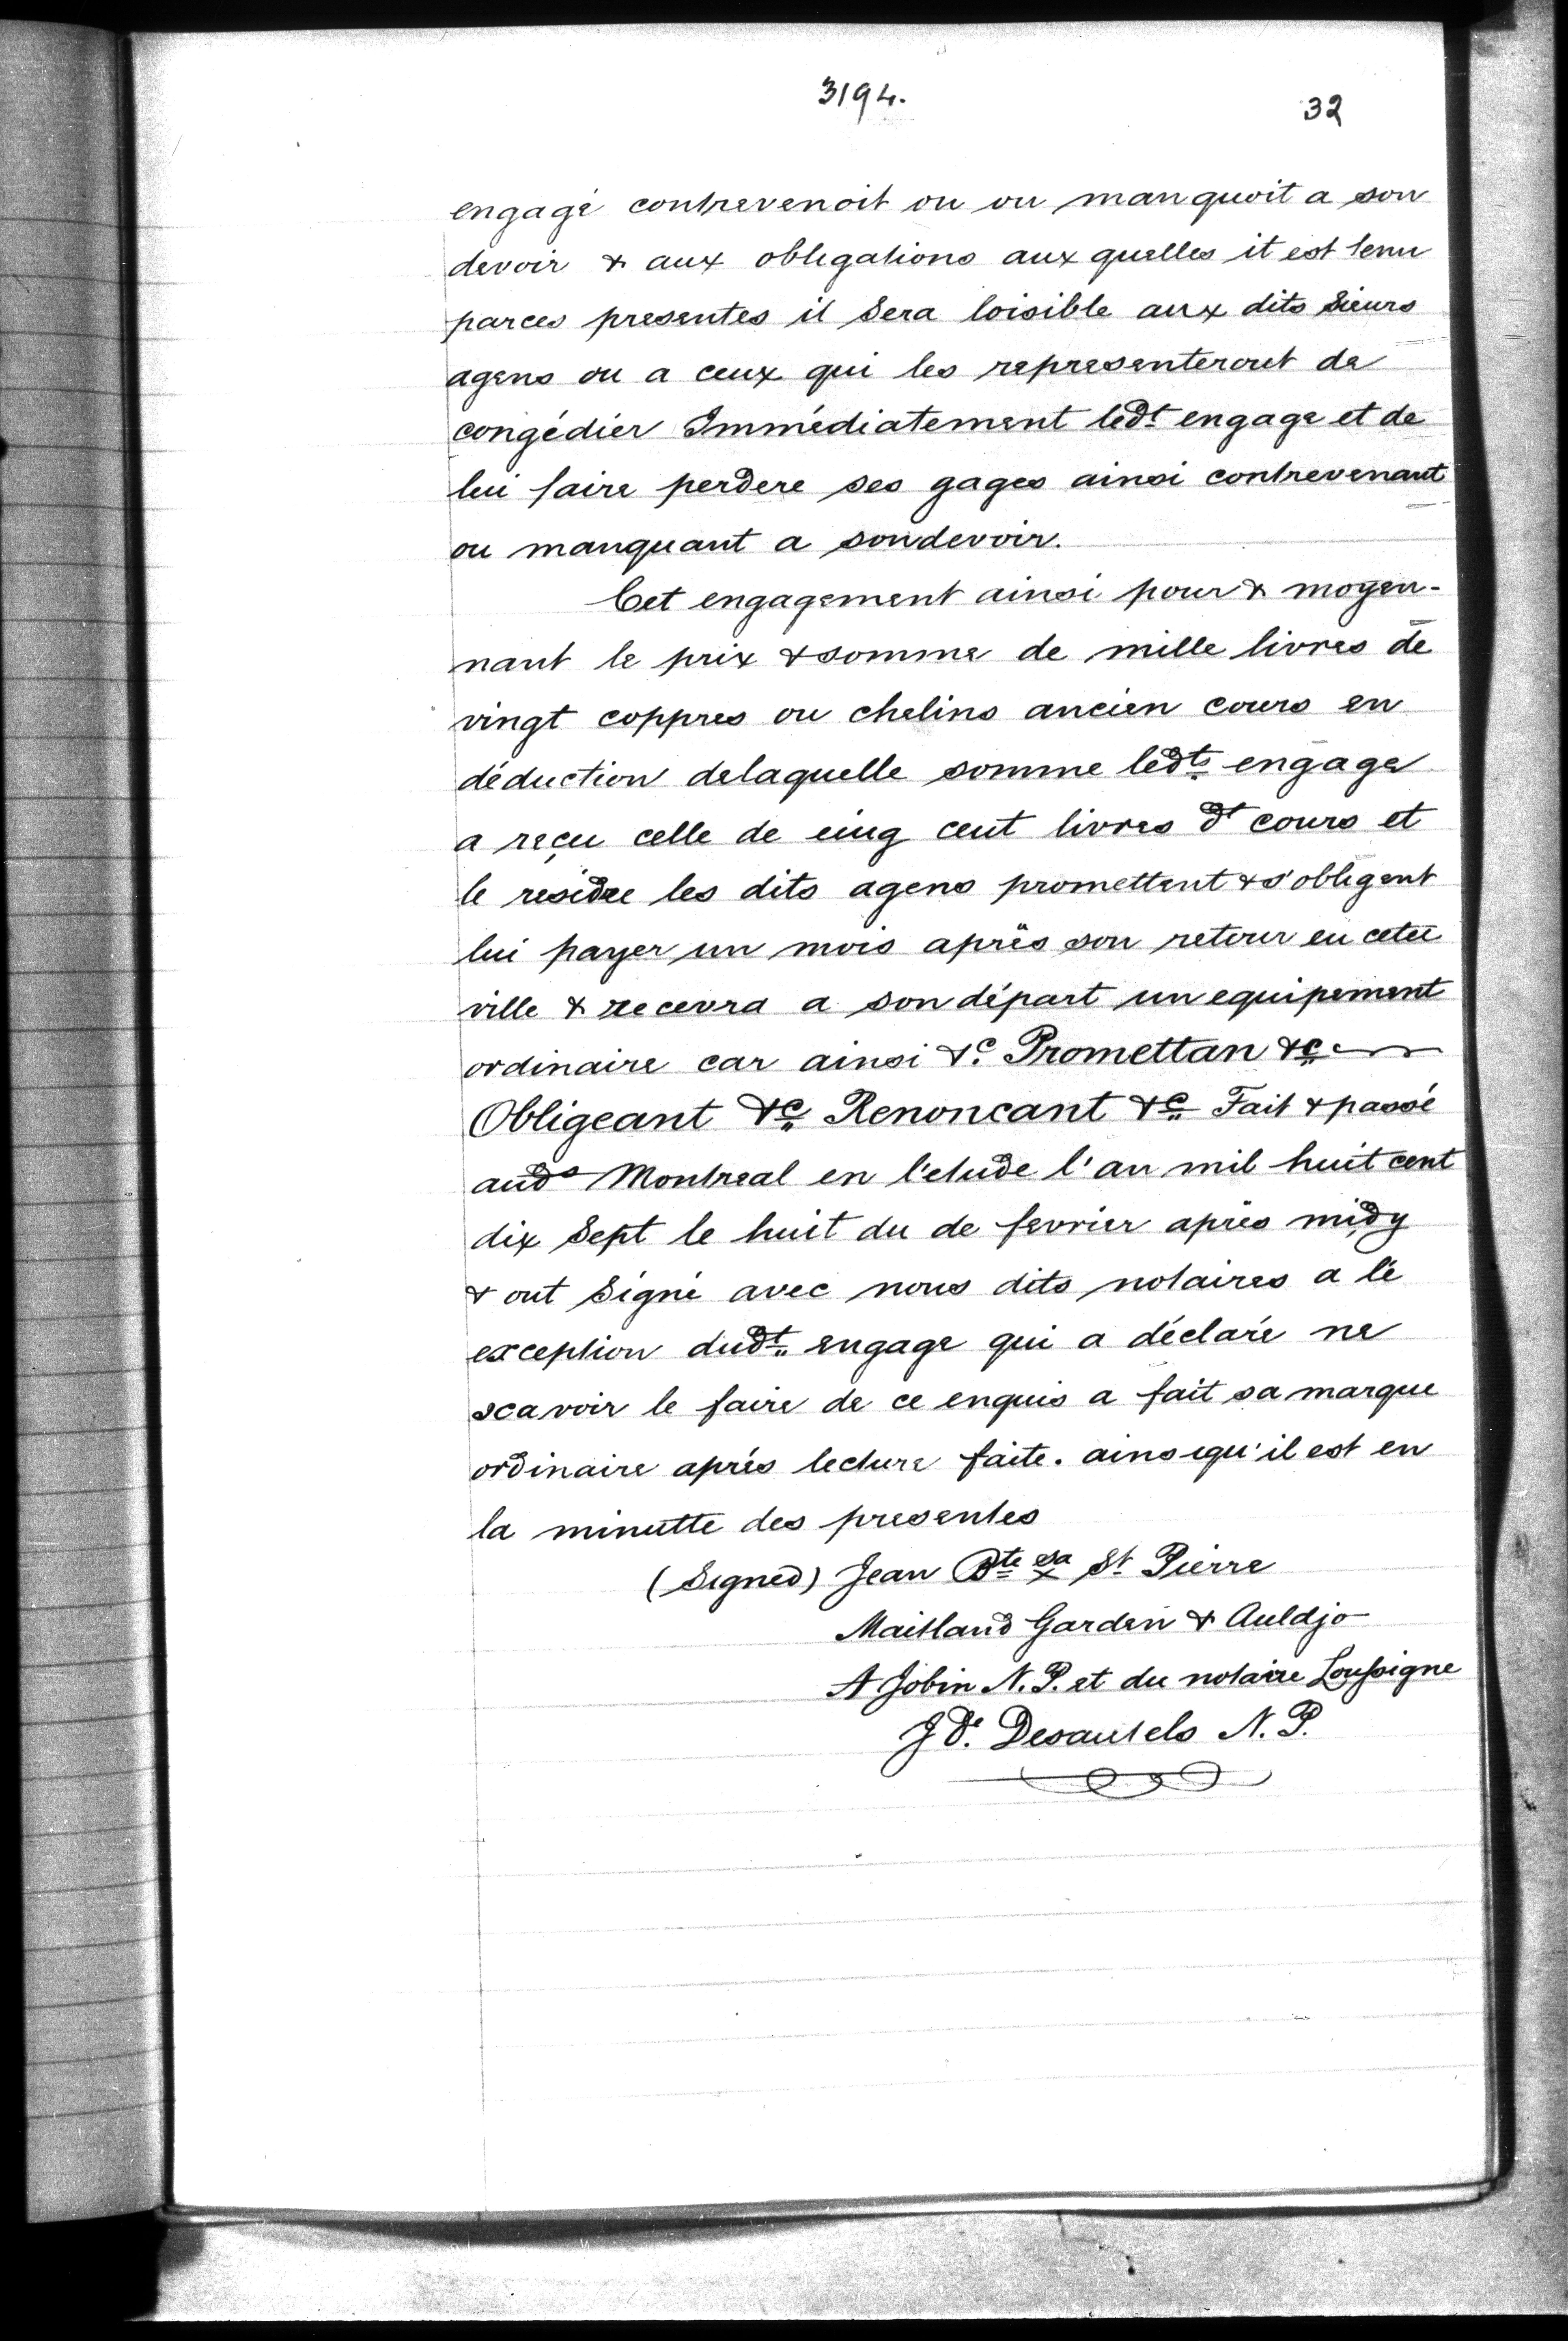 3194.
32
engagé contrevenoit ou ou manquoit a son
devoir & aux obligations aux quelles it est tenu
parces presentes il Sera loisible aux dits Sieurs
agens ou a ceux qui les representeront de
congédier Immédiatement ledt engage et de
lui faire perdere ses gages ainsi contrevenant
ou manquant a sondevoir.
Cet engagement ainsi pour & moyen-
nant le prix & somme de mille livres de
vingt coppres ou chelins ancien cours en
déduction delaquelle somme ledts engage
a reçu celle de cinq cent livres dt cours et
le residue les dits agens promettent & s'obligent
lui payer un mois après son retour en cette
ville & recevra a son départ un equipement
ordinaire car ainsi &c. Promettan &c
Obligeant &c Renoncant &c Fait & passé
aud Montreal en l'etude l'an mil huit cent
dix Sept le huit du de fevrier après midy
& ont Signé avec nous dits notaires a le
exception dudt engage qui a déclaré ne
scavoir le faire de ce enquis a fait sa marque
ordinaire aprés lecture faite. ainsiqu'il est en
la minutte des presentes
(Signed) Jean Bte sa x St Pierre
Maitland Garden & Auldjo
A Jobin N. P. et du notaire Soussigne
J De. Desautels N. P.